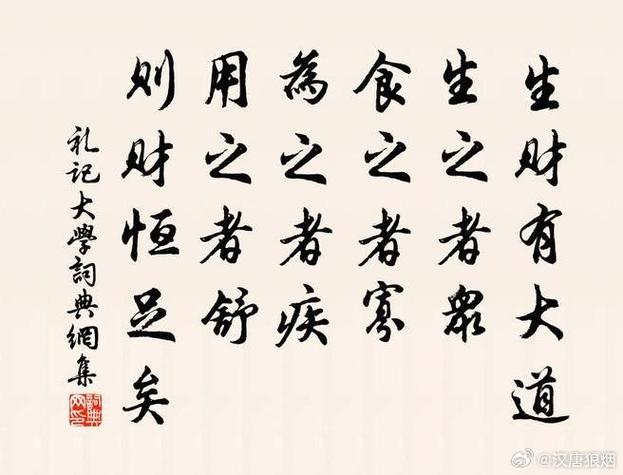 生财有大道
生之者眾
食之者寡
為之者疾
用之者舒
则财恒足矣
礼记大學詞典網集
詞典网印
@汉唐狼烟